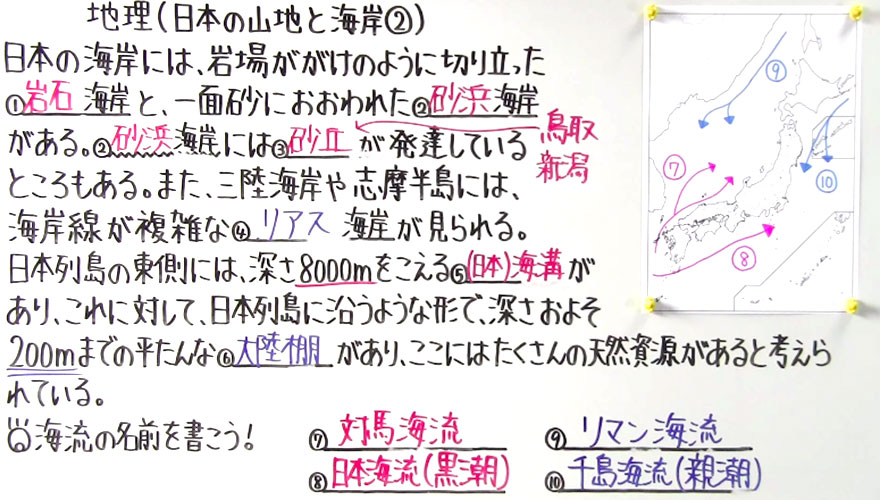 地理(日本の山地と海岸②)
日本の海岸には、岩場ががけのように切り立った
①岩石 海岸と、一面砂におおわれた②砂浜海岸
がある。②砂浜海岸には③砂丘 が発達している
鳥取
新潟
ところもある。また、三陸海岸や志摩半島には、
海岸線が複雑な④リアス 海岸が見られる。
日本列島の東側には、深さ8000mをこえる⑤(日本)海溝が
あり、これに対して、日本列島に沿うような形で、深さおよそ
200mまでの平たんな⑥大陸棚 があり、ここにはたくさんの天然資源があると考えら
れている。
海流の名前を書こう!
⑦対馬海流
⑨リマン海流
⑧日本海流(黒潮)
⑩千島海流(親潮)
⑨
⑦
⑩
⑧